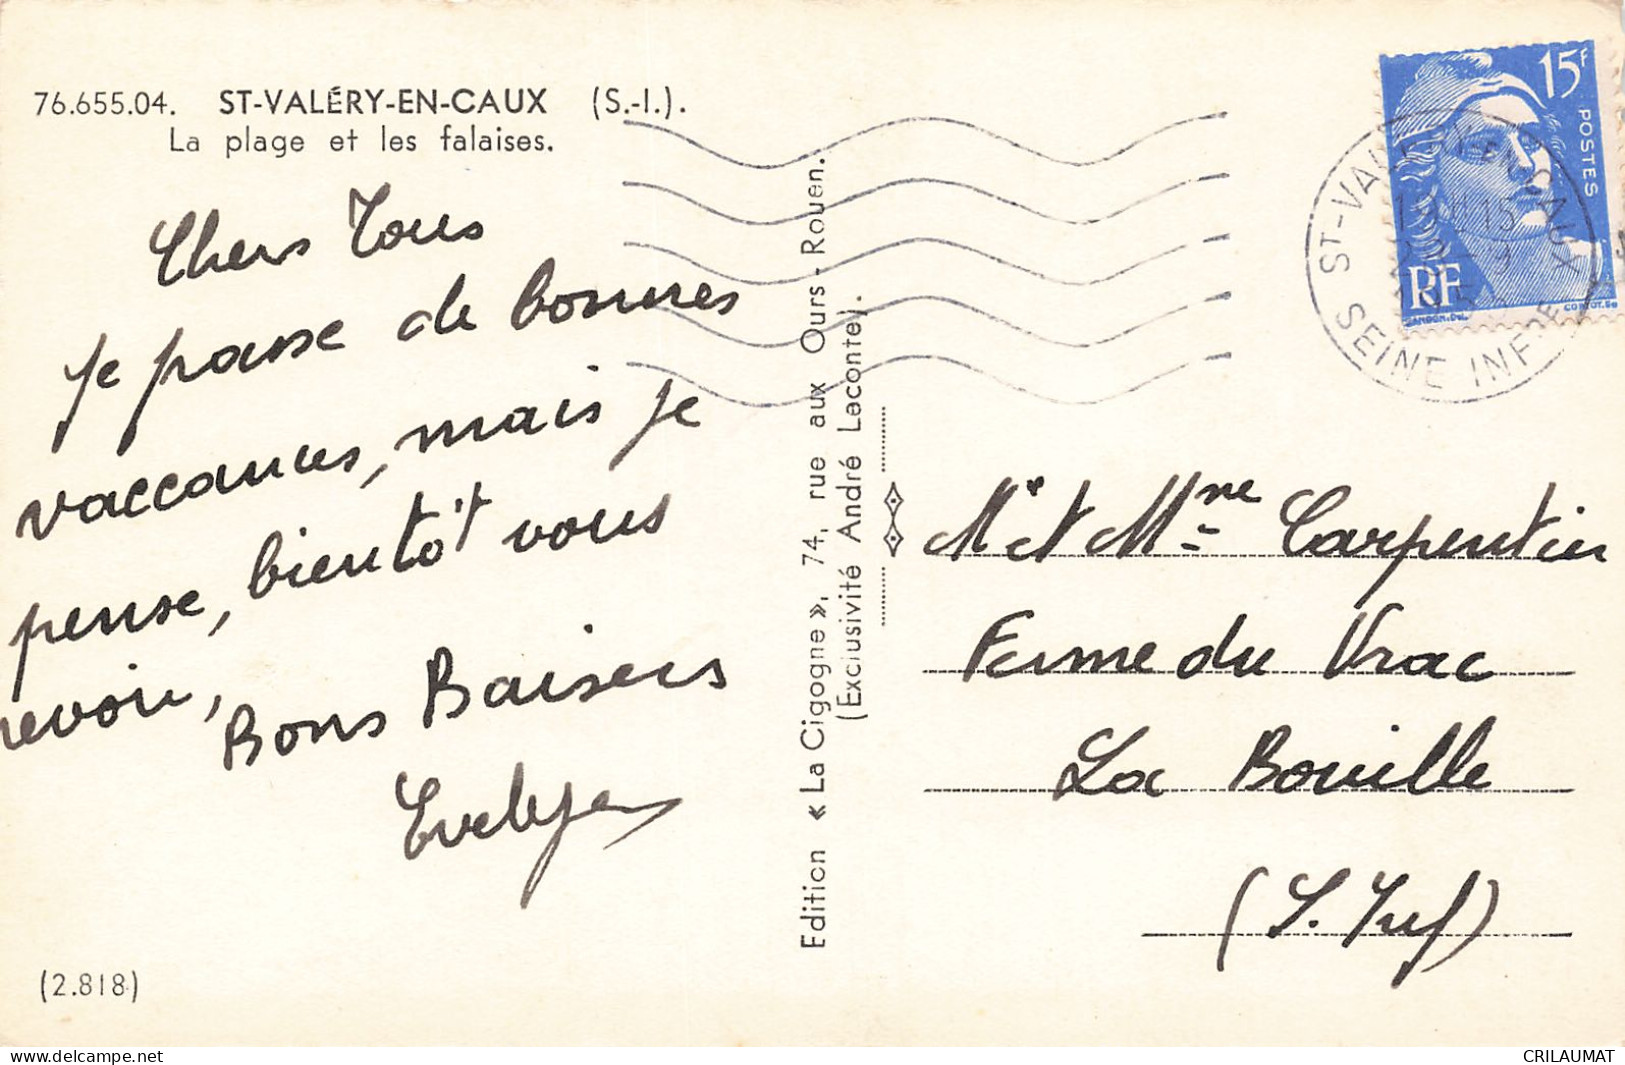 76.655.04. ST-VALÉRY-EN-CAUX (S.-I.).
La plage et les falaises.
Chers Tous
Je passe de bonnes
vaccances, mais je
pense, bientôt vous
revoir,
Bons Baisers
Evelyne
(2.818)
Edition « La Cigogne », 74, rue aux Ours - Rouen.
(Exclusivité André Leconte).
15F
POSTES
RF
ST-VALERY-EN-CAUX
SEINE INFRE
Mr et Mme Carpentier
Ferme du Vrac
La Bouille
(S. Inf)
www.delcampe.net
CRILAUMAT